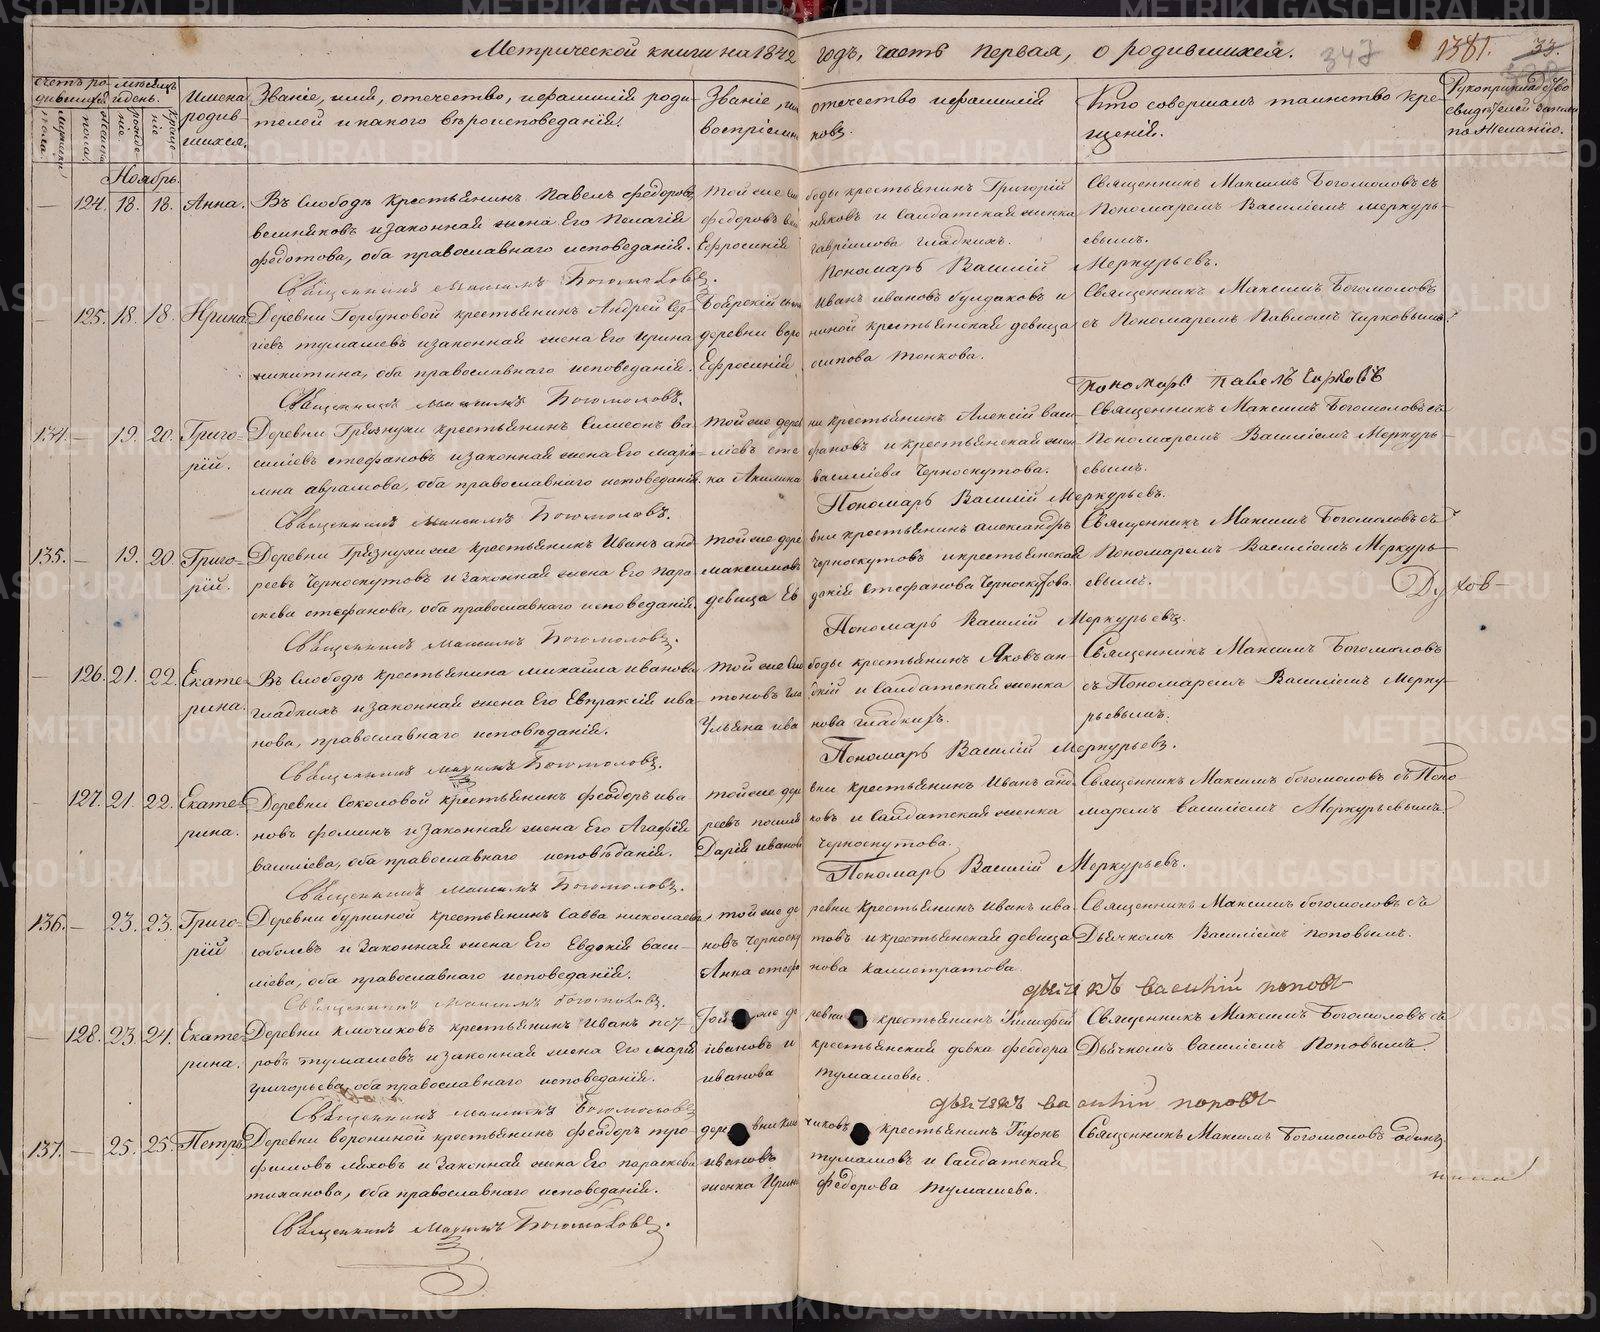 Метрической книги на 1842 годъ, часть первая, о родившихся. 347 1381. 33.
Счетъ родившихся
мужеска пола
женска пола
мѣсяцъ и день.
рожденіе
крещеніе
Имена родившихся.
Званіе, имя, отечество, и фамилія родителей и какого вѣроисповеданія.
Званіе, имя отечество и фамилія воспріемниковъ.
Кто совершалъ таинство крещенія.
Рукоприкладство свидѣтелей записи по желанію.
Ноябрь.
— 124. 18. 18. Анна.
Въ Слободѣ крестьянинъ Павелъ Федоровъ
вешняковъ и законная жена Его Пелагія
Федотова, оба православнаго исповеданія.
Той же слободы крестьянинъ Григорій
Федоровъ вешняковъ и Салдатская женка
Ефросинія гавріилова гладкихъ.
Священникъ Максимъ Богомоловъ съ
Пономаремъ Василіемъ меркурь-
евымъ.
Священникъ Максимъ Богомоловъ.
Пономарь Василій Меркурьевъ.
125. 18. 18. Ирина
Деревни Горбуновой крестьянинъ Андрей Сер-
гіевъ тумашевъ и законная жена Его Ирина
никитина, оба православнаго исповеданія.
Иванъ ивановъ булдаковъ и
деревни крестьянская девица
Ефросинія осипова тонкова.
Священникъ Максимъ Богомоловъ
съ Пономаремъ Павломъ Чирковымъ.
Священникъ Максимъ Богомоловъ.
Пономарь Павелъ Чирковъ
134. — 19. 20. Григо-
рій.
Деревни Грязнухи крестьянинъ Симеонъ ва-
силіевъ стефановъ и законная жена Его марія-
мна аврамова, оба православнаго исповеданія.
Той же деревни крестьянинъ Алексій васи-
ліевъ стефановъ и крестьянская жен-
ка Акилина василіева Черноскутова.
Священникъ Максимъ Богомоловъ съ
Пономаремъ Василіемъ Меркурь-
евымъ.
Священникъ Максимъ Богомоловъ.
Пономарь Василій Меркурьевъ.
135. — 19. 20. Григо-
рій.
Деревни Грязнухи же крестьянинъ Иванъ анд-
реевъ Черноскутовъ и законная жена Его пара-
скева стефанова, оба православнаго исповеданія.
Той же деревни крестьянинъ александръ
максимовъ Черноскутовъ и крестьянская
девица Евдокія Стефанова Черноскутова.
Священникъ Максимъ Богомоловъ съ
Пономаремъ Василіемъ Меркурь-
евымъ.
Духов-
Священникъ Максимъ Богомоловъ.
Пономарь Василій Меркурьевъ.
— 126. 21. 22. Екате-
рина.
Въ Слободѣ крестьянина михаила иванова
гладкихъ и законная жена Его Евпраксія ива-
нова, православнаго исповѣданія.
Той же слободы крестьянинъ Яковъ ан-
тоновъ гладкій и Салдатская женка
Ульяна иванова гладкихъ.
Священникъ Максимъ Богомоловъ
съ Пономаремъ Василіемъ Мерку-
рьевымъ.
Священникъ Максимъ Богомоловъ.
Пономарь Василій Меркурьевъ.
127. 21. 22. Екате-
рина.
Деревни Соколовой крестьянинъ Феодоръ ива-
новъ фоминъ и законная жена Его Агафія
василіева, оба православнаго исповѣданія.
Той же деревни крестьянинъ Иванъ анд-
реевъ и Салдатская женка
Дарія иванова Черноскутова.
Священникъ Максимъ богомоловъ съ Поно-
маремъ василіемъ Меркурьевымъ.
Священникъ Максимъ Богомоловъ.
Пономарь Василій Меркурьевъ.
136. — 23. 23. Григо-
рій
Деревни бурниной крестьянинъ Савва николаевъ
соболевъ и Законная жена Его Евдокія васи-
ліева, оба православнаго исповеданія.
Той же деревни крестьянинъ Иванъ ива-
новъ Черноскутовъ и крестьянская девица
Анна стефанова Калистратова
Священникъ Максимъ богомоловъ съ
Дьячкомъ Василіемъ поповымъ.
Священникъ Максимъ богомоловъ.
дьячикъ василій поповъ
— 128. 23. 24. Екате-
рина.
Деревни ключиковъ крестьянинъ Иванъ пет-
ровъ тумашевъ и законная жена Его марія
григорьева, оба православнаго исповеданія.
Той же деревни крестьянинъ Тимофей
ивановъ и крестьянская девка Феодора
иванова тумашевы.
Священникъ Максимъ Богомоловъ съ
Дьячкомъ василіемъ Поповымъ.
Священникъ Максимъ Богомоловъ
дьячекъ василій поповъ
137. — 25. 25. Петръ
Деревни ворониной крестьянинъ Феодоръ тро-
фимовъ ляховъ и Законная жена Его параскева
тиханова, оба православнаго исповеданія.
деревни ключиковъ крестьянинъ Тихонъ
ивановъ тумашовъ и Салдатская
женка Ирина Федорова тумашева.
Священникъ Максимъ Богомоловъ одинъ
Священникъ Максимъ Богомоловъ.
METRIKI.GASO-URAL.RU